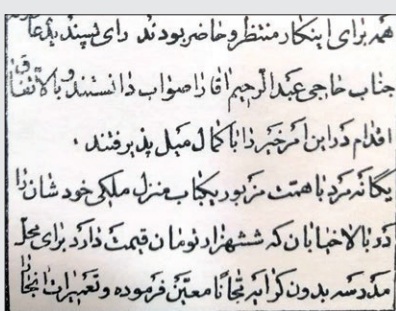 همه برای اینکار منتظر و حاضر بودند رای پسندیدهٔ
جناب حاجی عبدالرحیم اقا را صواب دانستند و بالاتفاق
اقدام در این امر خیر را با کمال میل پذیرفتند .
یگانه مرد با همت مزبور یکباب منزل ملکی خودشان را
در بالاخیابان که ششهزار تومان قیمت دارد برای محل
مدرسه بدون کرایه مجانا معین فرموده و تعمیرات انجا را